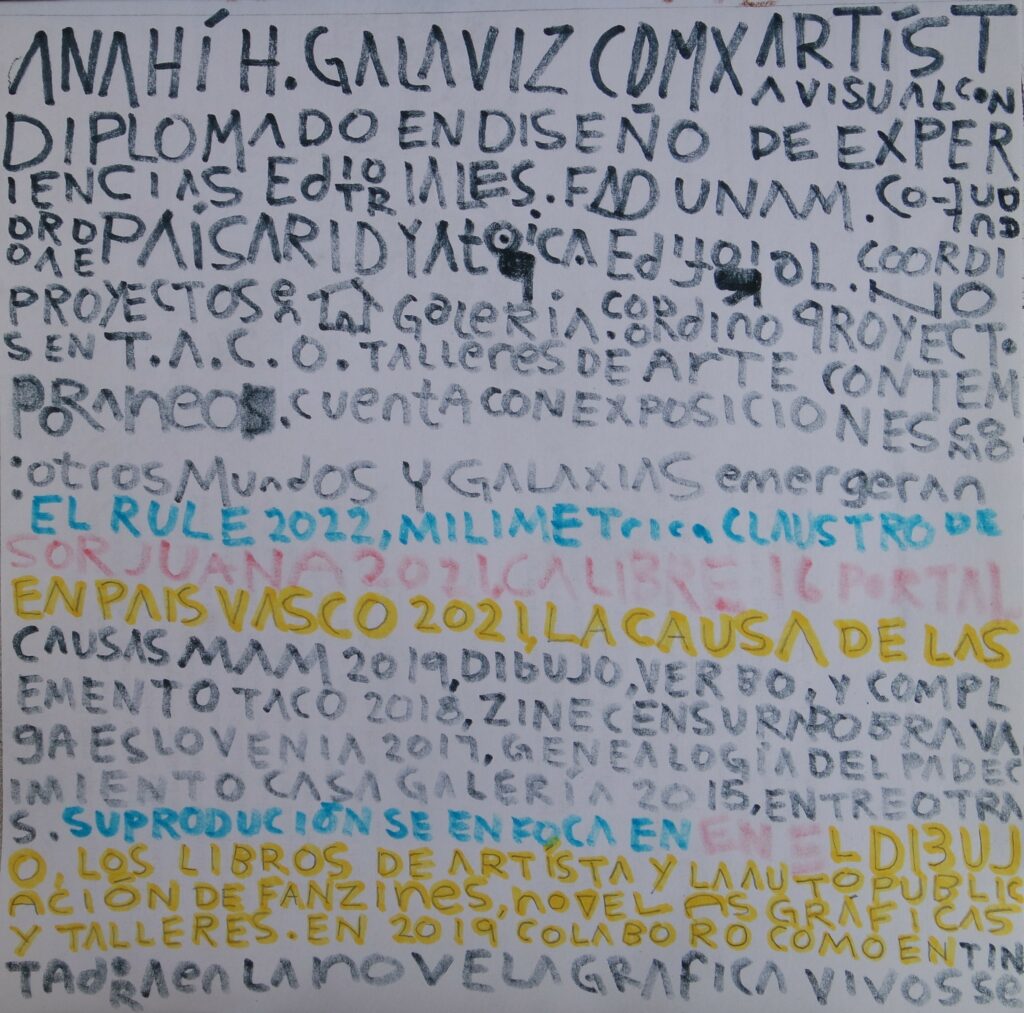 ANAHÍ H. GALAVIZ CDMX ARTÍST
A VISUAL CON
DIPLOMADO EN DISEÑO DE EXPER
IENCIAS EdITORIALES. FAD UNAM. CO-FUND
ADOR DE PAÍS ARIDY Atoica Editorial. COORDINO
PROYECTOS EN CASA GaleRíA. COORDINO PROYECTO
S EN T.A.C.O. TALLeres DE ArTE CONTEM
PORAneos. cuentA CON EXPOSICIONES COMO
:otros Mundos Y GALAXIAS emergeran
EL RULE 2022, MILIMETrica CLAUSTRO DE
SOR JUANA 2021, CALIBRE 16 PORTAL
EN PAIS VASCO 2021, LA CAUSA DE LAS
CAUSAS MAM 2019, DIBUJO, VERBO, Y COMPL
EMENTO TACO 2018, ZINE CENSURADO BRAVA
gA ESLOVENIA 2017, GENEALOGÍA DEL PADEC
IMIENTO CASA GALERÍA 2015, ENTRE OTRA
S. SU PRODUCIÓN SE ENFOCA EN EN EL DIBUJ
O, LOS LIBROS DE ARTÍSTA Y LA AUTOPUBLIC
ACIÓN DE FANZInes, noVELAS GRÁFICAS
Y TALLERES. EN 2019 COLABORO COMO ENTIN
TAdoRA en LA noVELA GRAFICA VIVOS SE